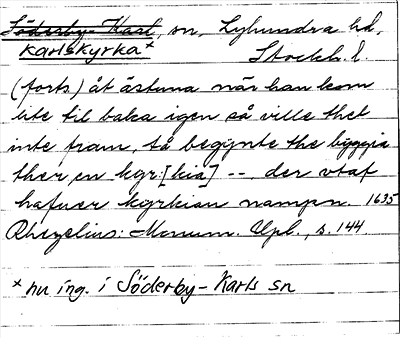 Söderby-Karl, sn, Lyhundra hd,
Karlskyrka* Stockh. l.
(forts) åt ästuna når han kom
lite til baka igen så ville thet
inte fram, tå begÿnte the bÿggia
ther en kÿr[kia] --, der vtaf
hafuer kÿrkian nampn. 1635
Rhezelius: Monum. Upl., s. 144.
* nu ing. i Söderby-Karls sn